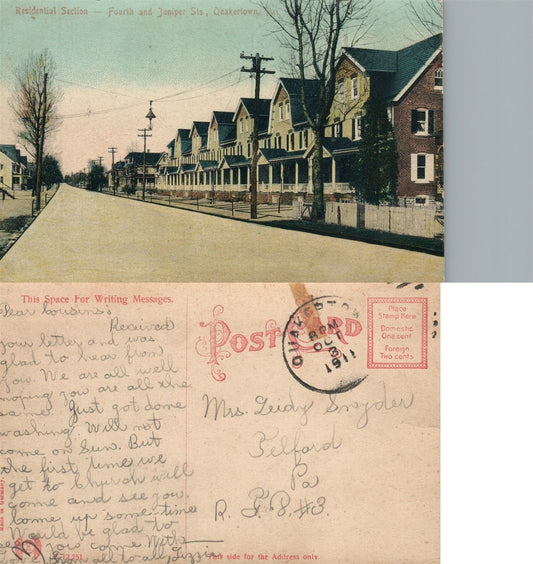 Residential Section — Fourth and Juniper Sts., Quakertown,
This Space For Writing Messages.
Dear Cousins
Received
your letter and was
glad to hear from
you. We are all well
hoping you are all the
same. Just got done
washing. Will not
come on Sun. But
the first time we
get to Church will
come and see you.
Come up some time
Would be glad to
see you come With
love from all to all, Lizzie
Made in Germany.
POST CARD
QUAKERTOWN
8 PM
OCT
3
1911
Place
Stamp Here
Domestic
One cent
Foreign
Two cents
Mrs. Leidy Snyder
Telford
Pa
R. F. D. #3.
This side for the Address only.